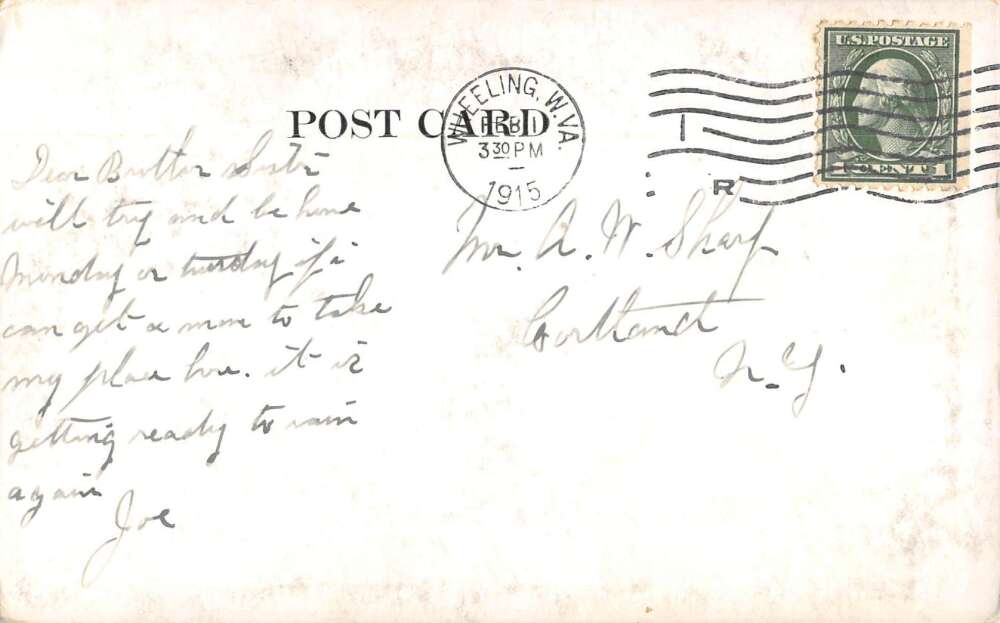 POST CARD
WHEELING, W.VA.
FEB 1
3 30 PM
1915
R
U.S. POSTAGE
1 CENT 1
Dear Brother Sister
will try and be home
Monday or tuesday if i
can get a man to take
my place here. it is
getting ready to rain
again
Joe
Mr. A. W. Sharp
Cortland
N.Y.